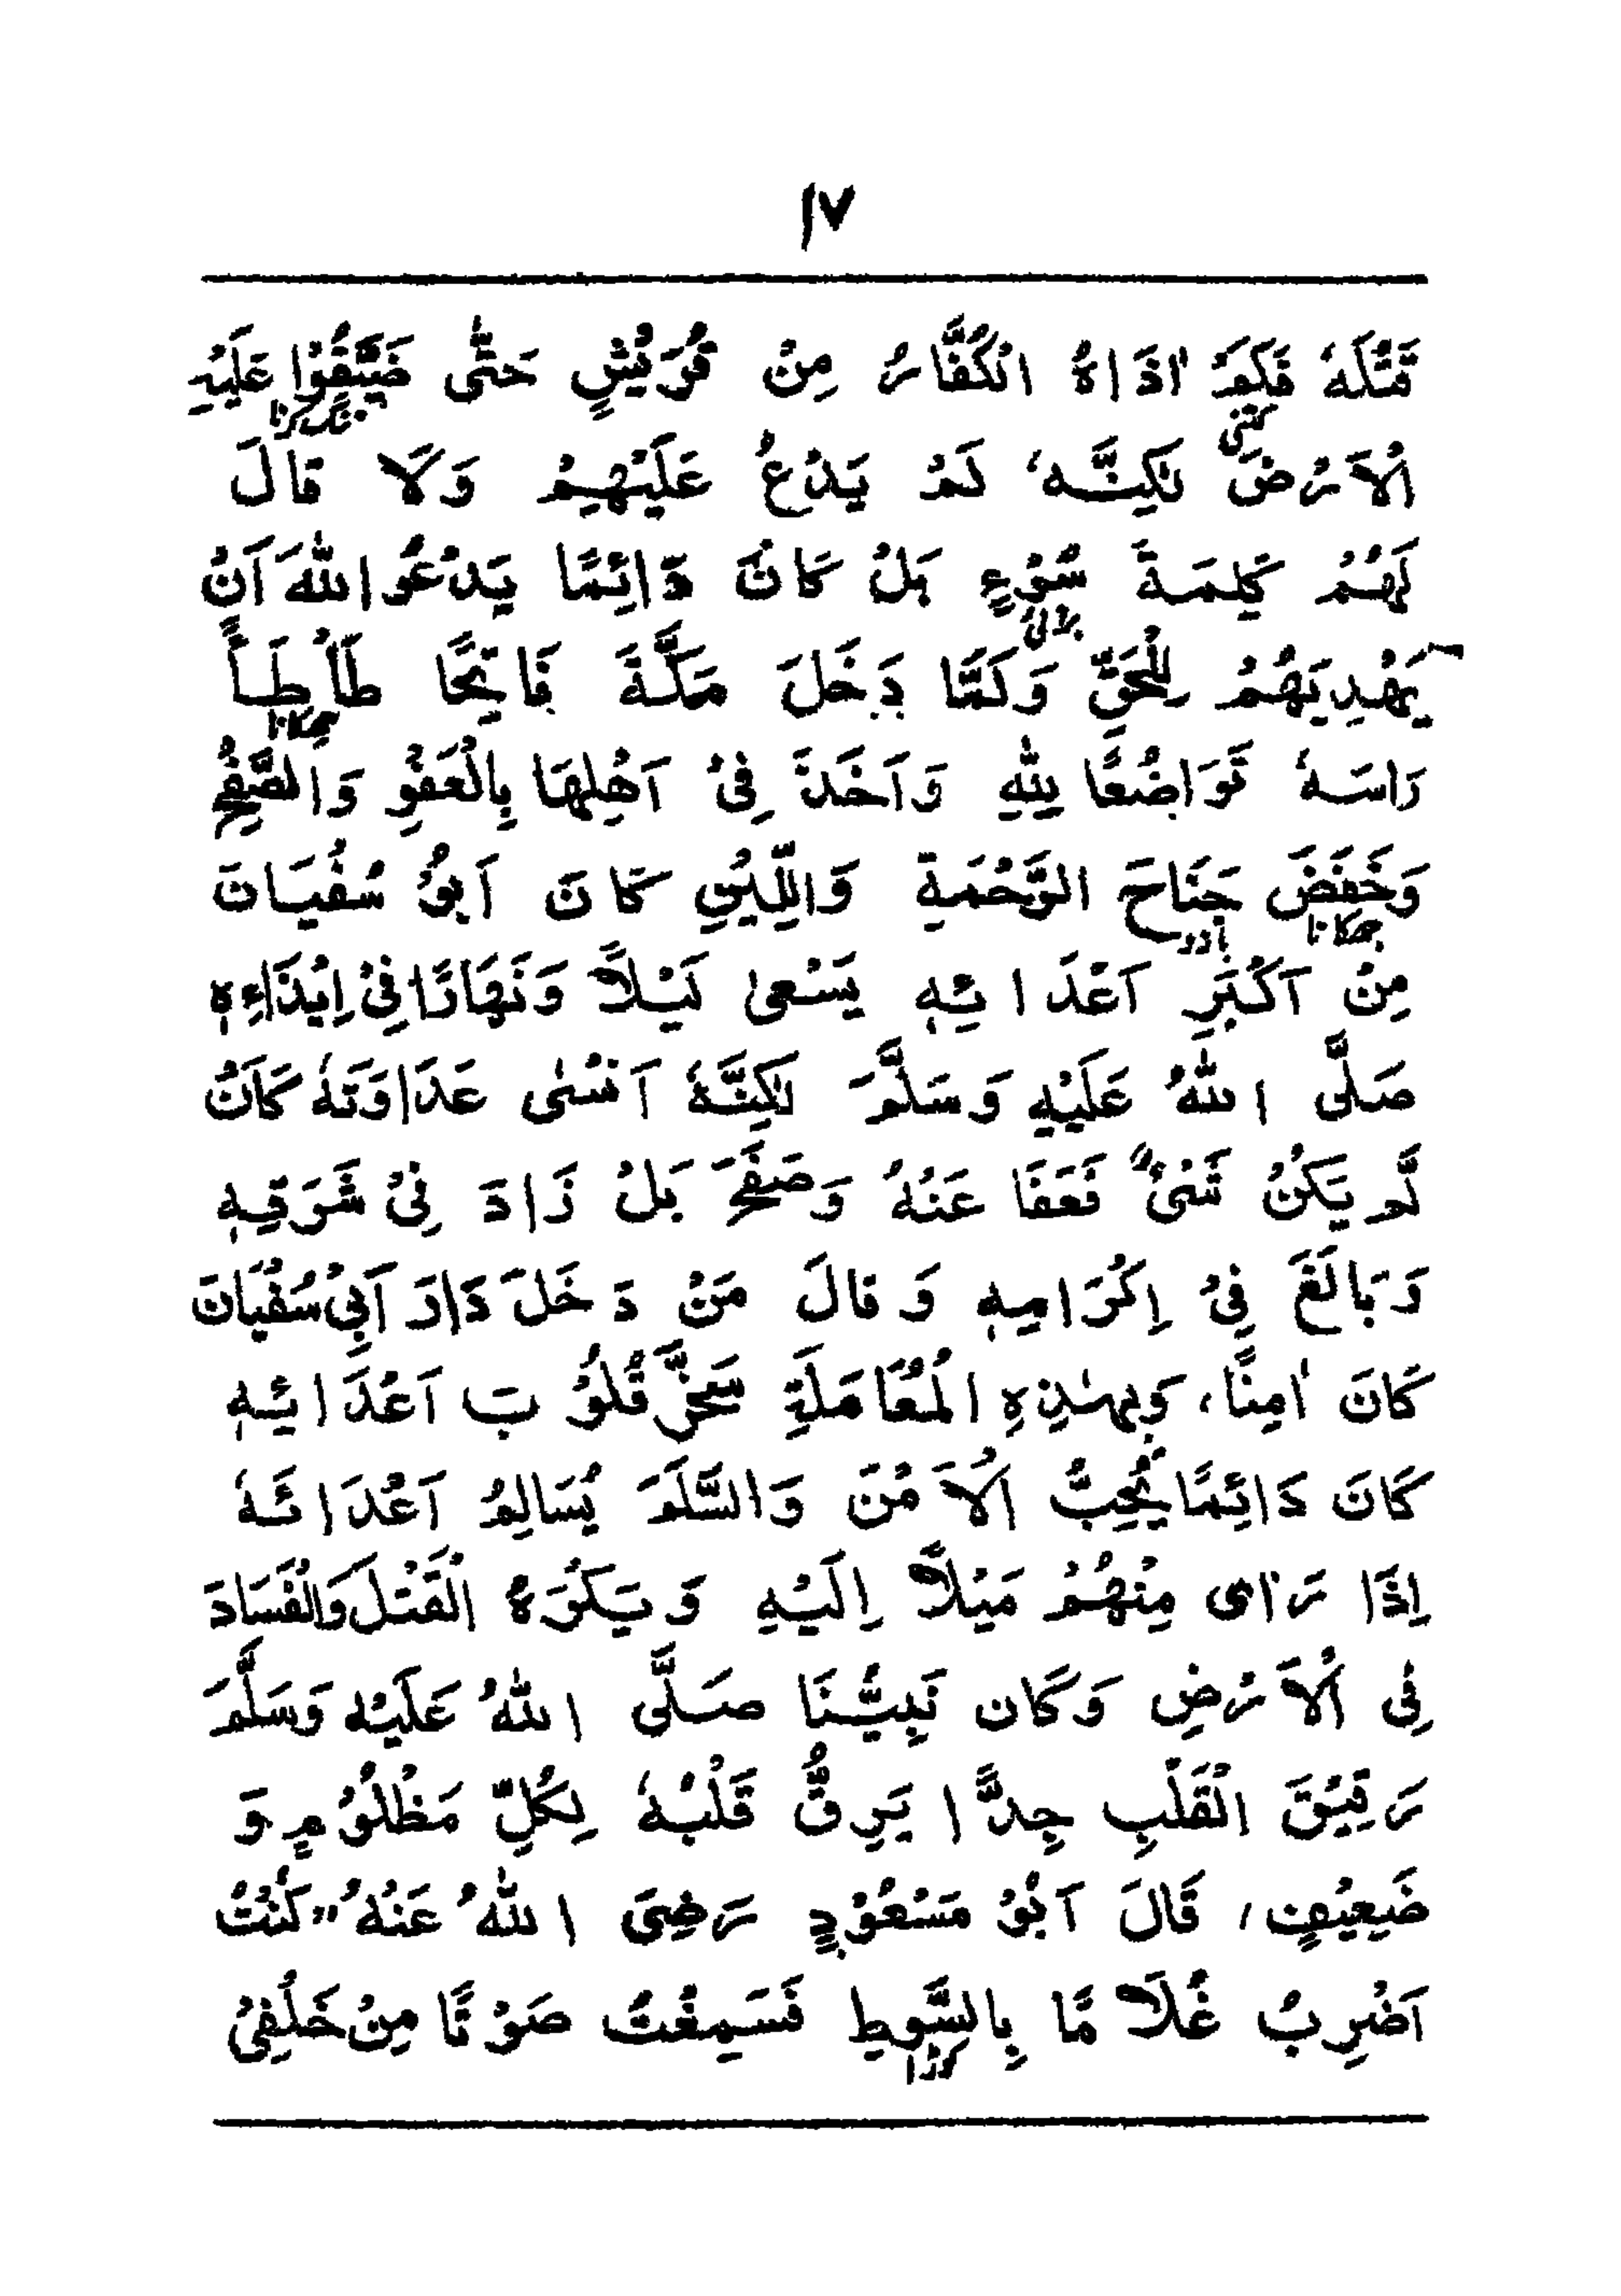 ۱۷
قَتْلَهٗ فَكَمْ اٰذَاهُ الْكُفَّارُ مِنْ قُرَيْشٍ حَتّٰى ضَيَّقُوْا عَلَيْهِ
كتنى تنگ كرنا
الْاَرْضَ لٰكِنَّهٗ لَمْ يَدْعُ عَلَيْهِمْ وَلَا قَالَ
لَهُمْ كَلِمَةَ سُوْءٍ بَلْ كَانَ دَائِمًا يَدْعُو اللهَ اَنْ
برائى
يَهْدِيَهُمْ لِلْحَقِّ وَلَمَّا دَخَلَ مَكَّةَ فَاتِحًا طَأْطَأَ
جھكانا
رَاسَهٗ تَوَاضُعًا لِلّٰهِ وَاَخَذَ فِىْ اَهْلِهَا بِالْعَفْوِ وَالصَّفْحِ
وَخَفَضَ جَنَاحَ الرَّحْمَةِ وَاللِّيْنِ كَانَ اَبُوْ سُفْيَانَ
جھكانا بازو
مِنْ اَكْبَرِ اَعْدَائِهٖ يَسْعىٰ لَيْلاً وَنَهَارًا فِىْ اِيْذَاءِهٖ
صَلَّى اللهُ عَلَيْهِ وَسَلَّمَ لٰكِنَّهٗ اَنْسٰى عَدَاوَتَهٗ كَاَنْ
لَّمْ يَكُنْ شَىْءٌ فَعَفَا عَنْهُ وَصَفَحَ بَلْ زَادَ فِىْ شَرَفِهٖ
وَبَالَغَ فِىْ اِكْرَامِهٖ وَقَالَ مَنْ دَخَلَ دَارَ اَبِىْ سُفْيَانَ
كَانَ اٰمِنًا، وَبِهٰذِهِ الْمُعَامَلَةِ سَخَّرَ قُلُوْبَ اَعْدَائِهٖ
كَانَ دَائِمًا يُحِبُّ الْاَمْنَ وَالسَّلَمَ يُسَالِمُ اَعْدَائَهٗ
اِذَا رَاٰى مِنْهُمْ مَيْلاً اِلَيْهِ وَيَكْرَهُ الْقَتْلَ وَالْفَسَادَ
فِى الْاَرْضِ وَكَان نَبِيُّنَا صَلَّى اللهُ عَلَيْهِ وَسَلَّمَ
رَقِيْقَ الْقَلْبِ جِدًّا يَرِقُّ قَلْبُهٗ لِكُلِّ مَظْلُوْمٍ وَ
ضَعِيْفٍ، قَالَ اَبُوْ مَسْعُوْدٍ رَضِىَ اللهُ عَنْهُ "كُنْتُ
اَضْرِبُ غُلَامًا بِالسَّوطِ فَسَمِعْتُ صَوْتًا مِنْ خَلْفِىْ
كوڑا